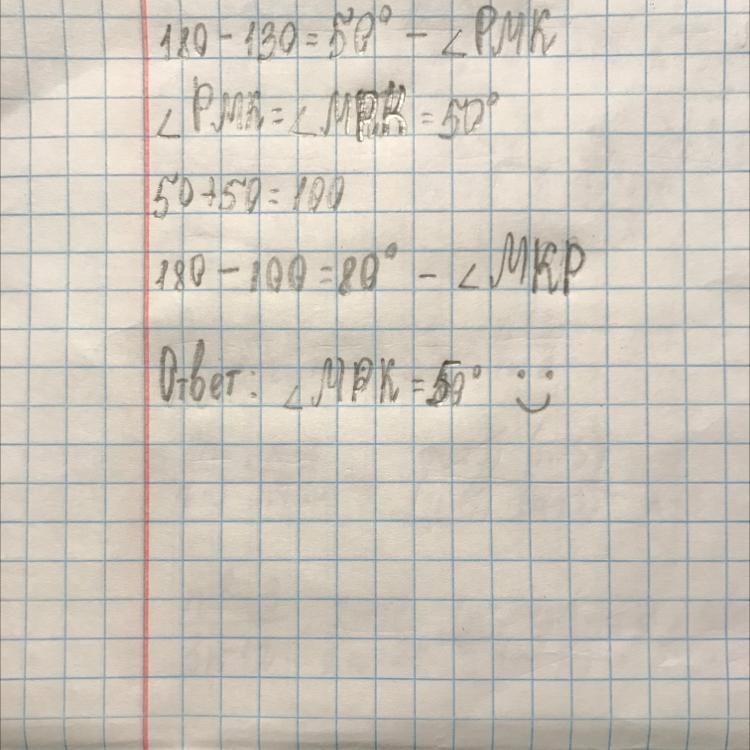 180 - 130 = 50° - ∠PMK
∠PMK = ∠MPK = 50°
50 + 50 = 100
180 - 100 = 80° - ∠MKP
Ответ: ∠MPK = 50° :)